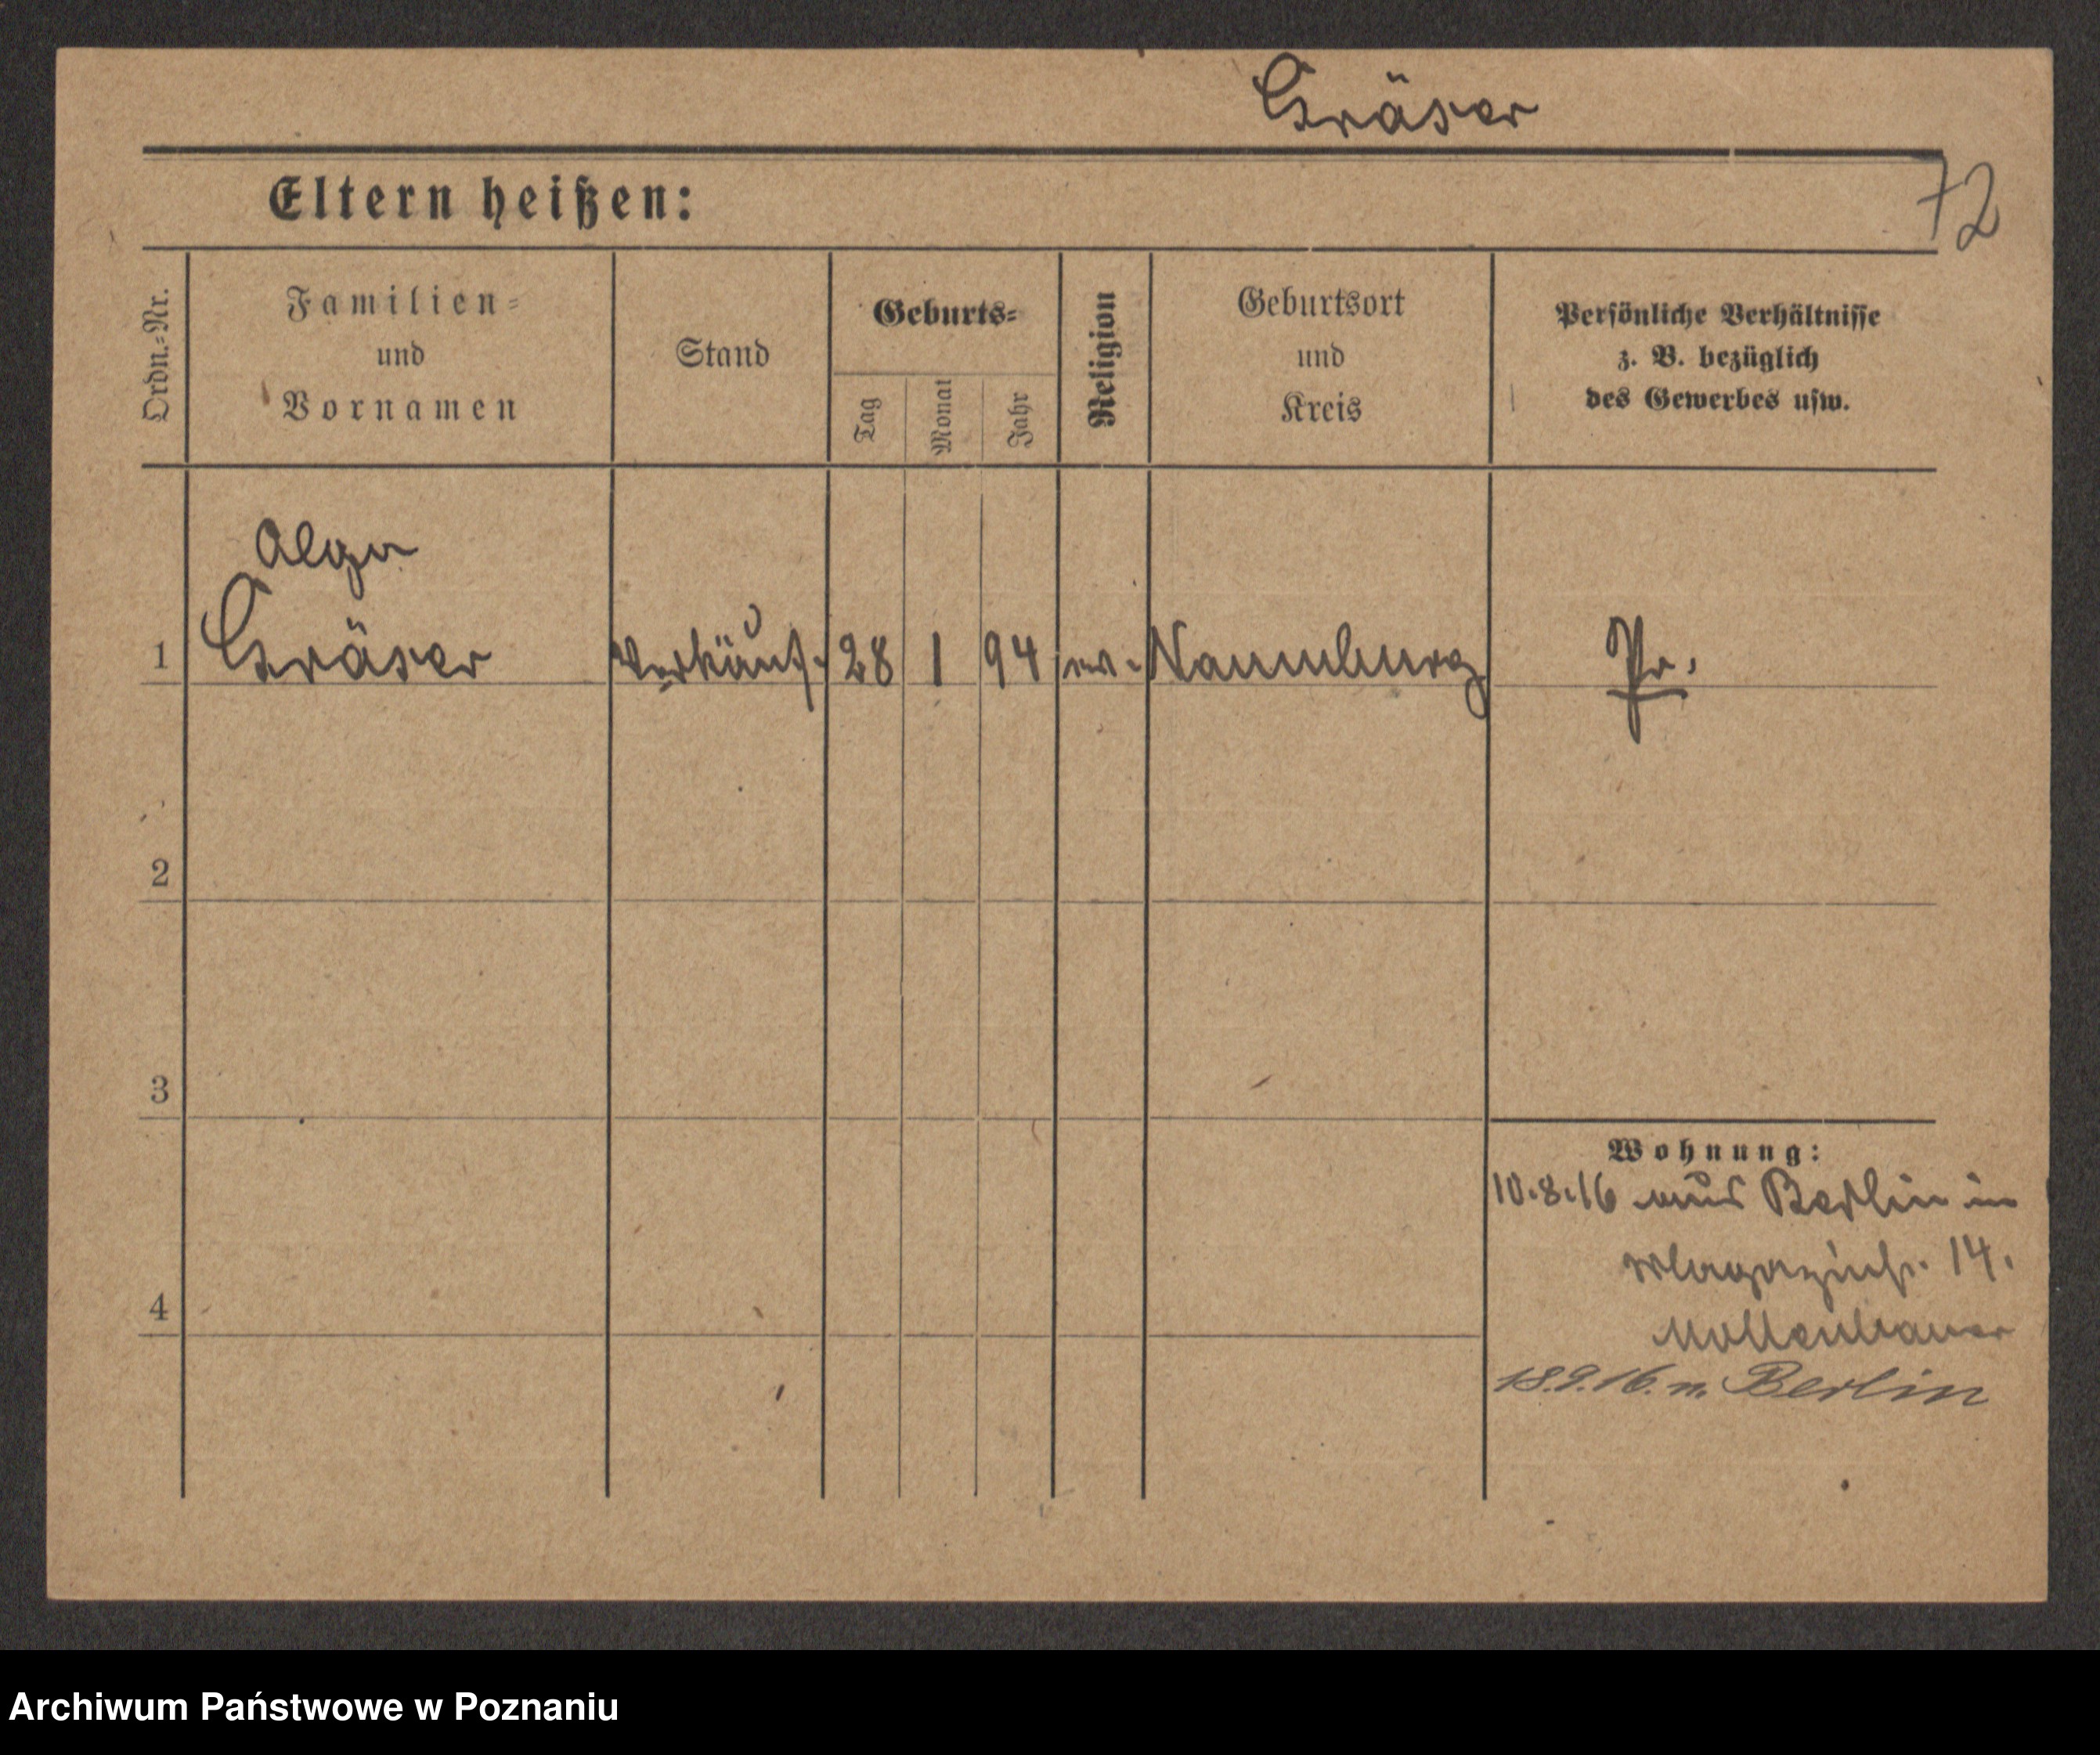 Gräser
72
Eltern heißen:
Ordn.-Nr.
Familien-
und
Vornamen
Stand
Geburts-
Tag
Monat
Jahr
Religion
Geburtsort
und
Kreis
Persönliche Verhältnisse
z. B. bezüglich
des Gewerbes usw.
Olga
1 Gräser Verkäuf. 28 1 94 ev. Naumburg Pr.
2
3
4
Wohnung:
10.8.16 aus Berlin in
Magazinstr. 14.
Mollenhauer
18.9.16. n. Berlin
Archiwum Państwowe w Poznaniu